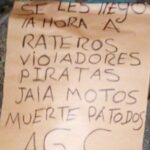 SE LES LLEGO
LA HORA A
RATEROS
VIOLADORES
PIRATAS
JALA MOTOS
MUERTE PA TODOS
AGC